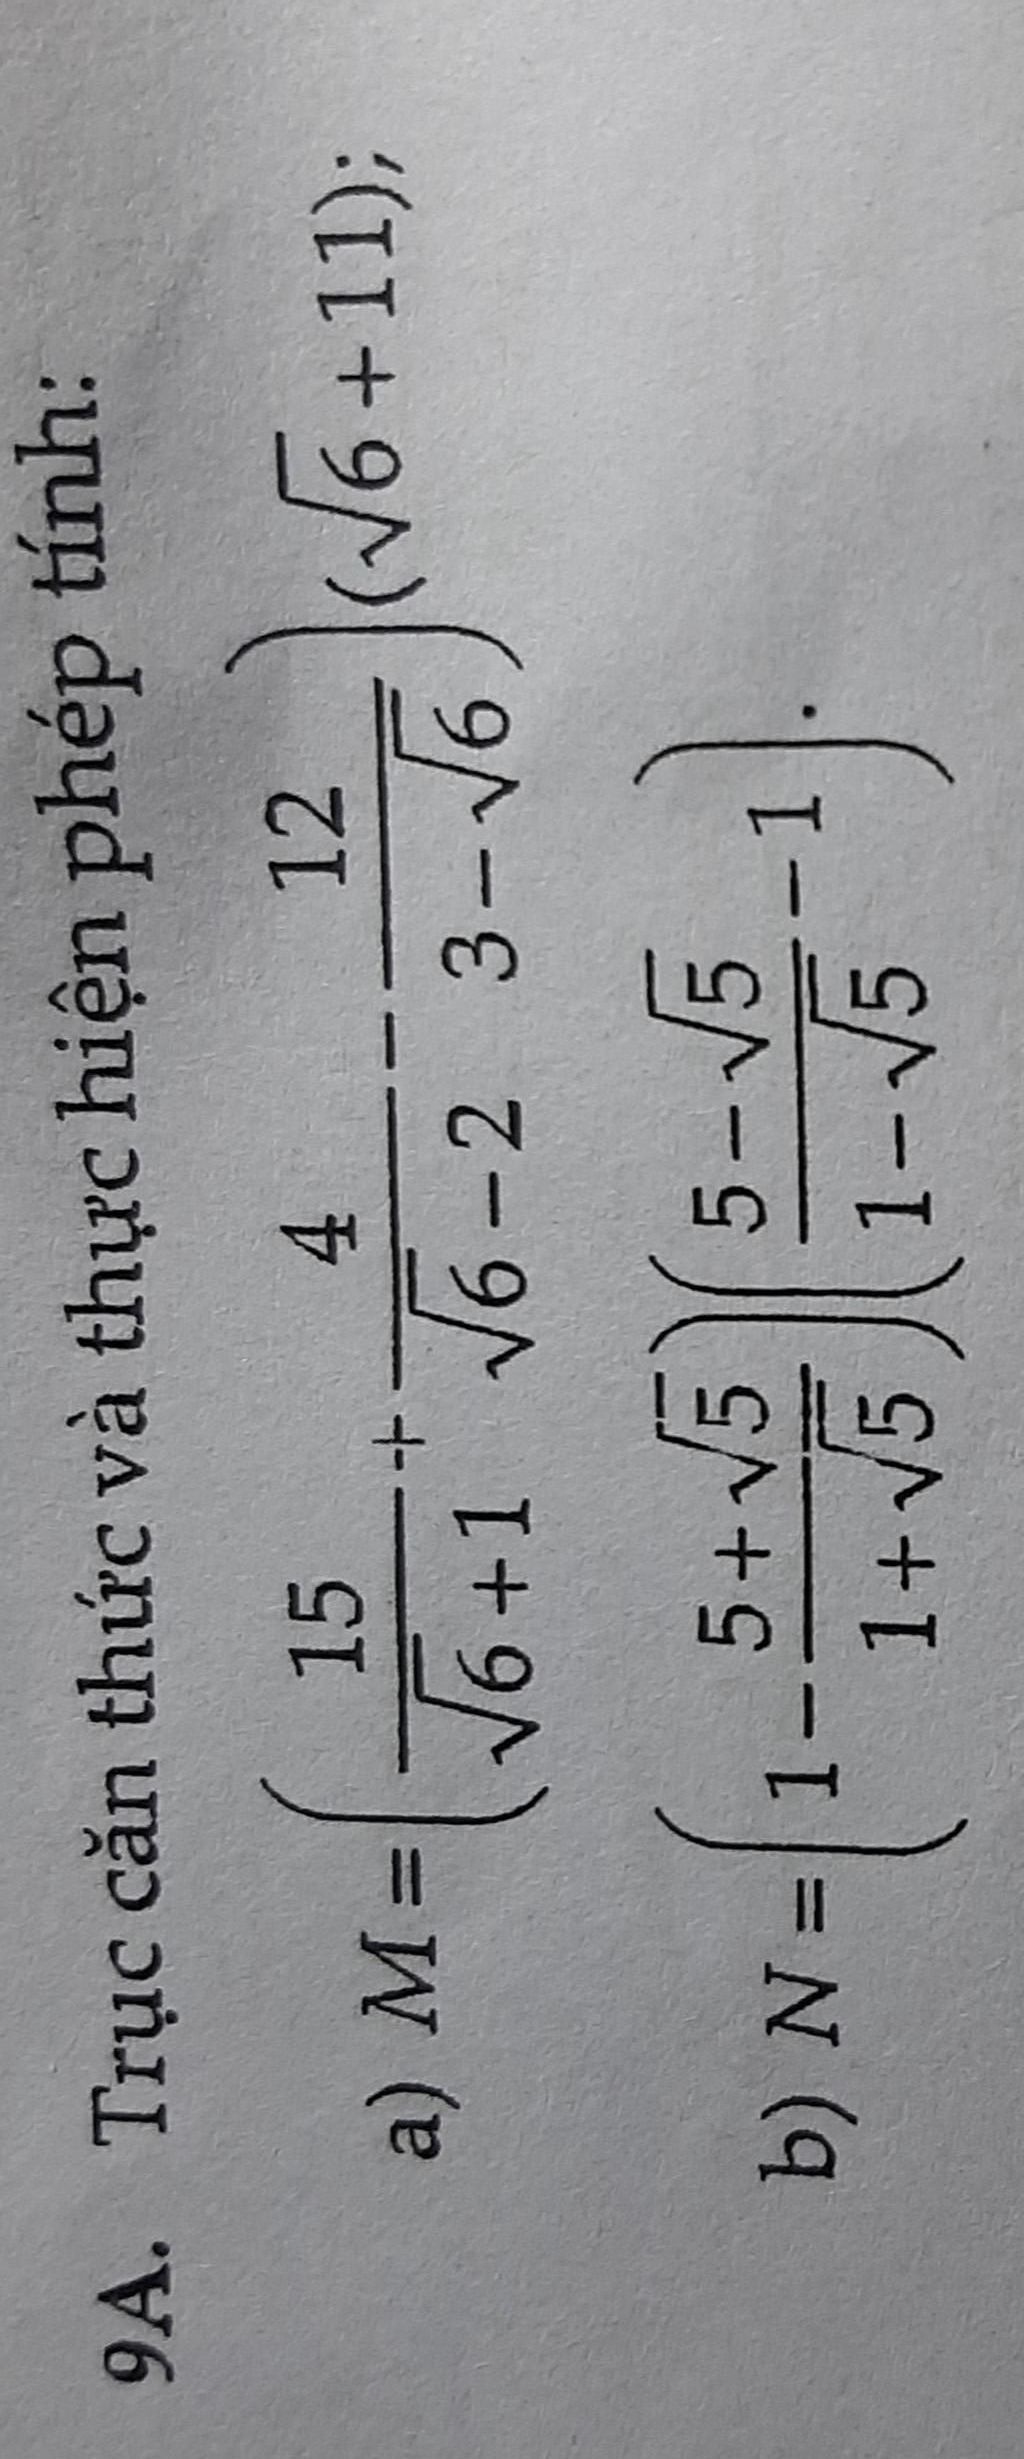 9A. Trục căn thức và thực hiện phép tính:
a) M = (15/(√6 + 1) + 4/(√6 − 2) − 12/(3 − √6))(√6 + 11);
b) N = (1 − (5 + √5)/(1 + √5))((5 − √5)/(1 − √5) − 1).